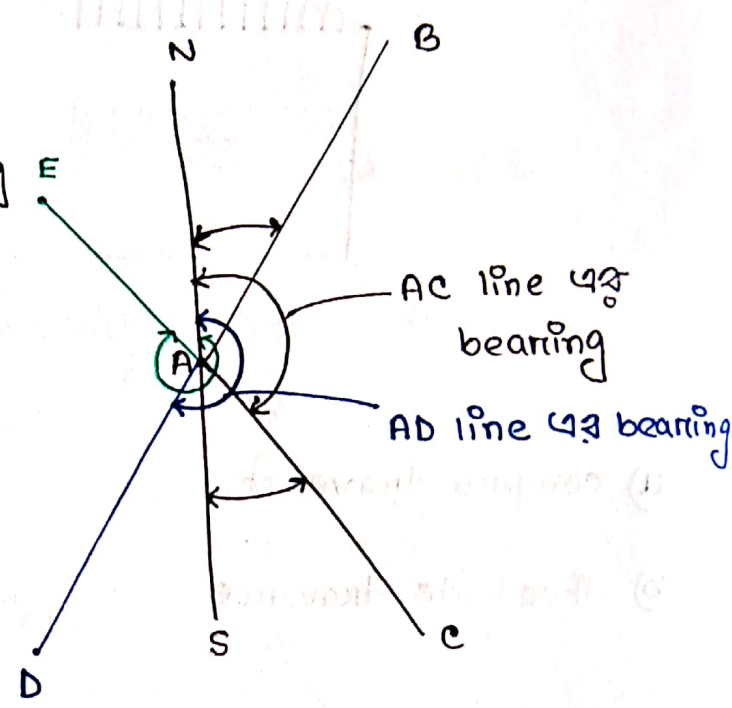 N
B
E
A
AC line এর
bearing
AD line এর bearing
S
C
D